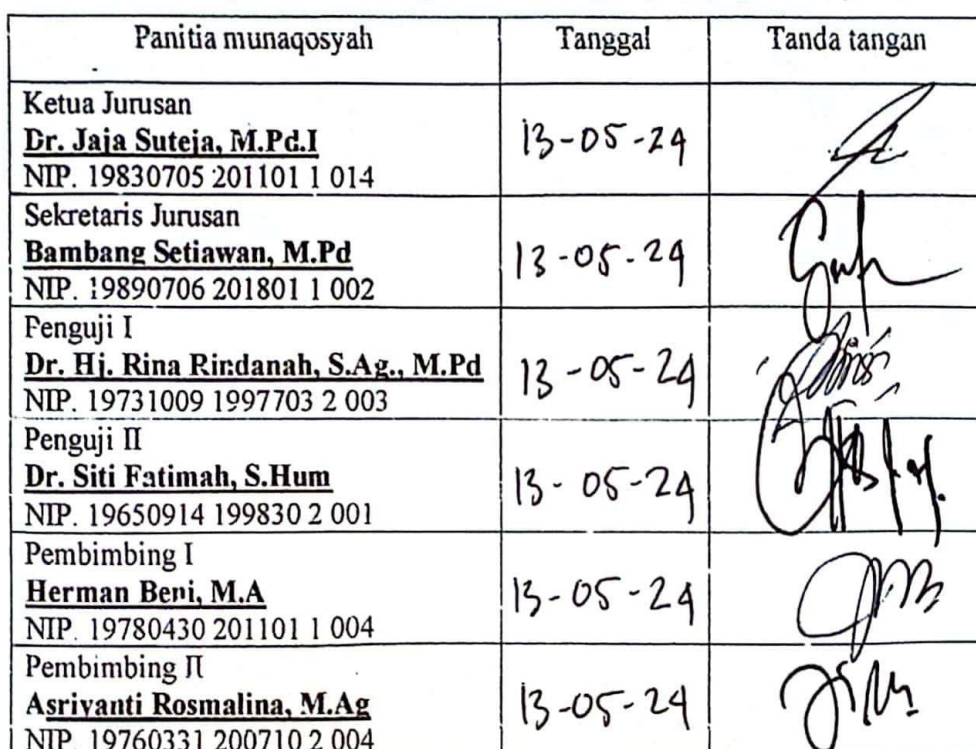 Panitia munaqosyah Tanggal Tanda tangan
Ketua Jurusan
Dr. Jaja Suteja, M.Pd.I
NIP. 19830705 201101 1 014
13-05-24
Sekretaris Jurusan
Bambang Setiawan, M.Pd
NIP. 19890706 201801 1 002
13-05-24
Penguji I
Dr. Hj. Rina Rindanah, S.Ag., M.Pd
NIP. 19731009 1997703 2 003
13-05-24
Penguji II
Dr. Siti Fatimah, S.Hum
NIP. 19650914 199830 2 001
13-05-24
Pembimbing I
Herman Beni, M.A
NIP. 19780430 201101 1 004
13-05-24
Pembimbing II
Asriyanti Rosmalina, M.Ag
NIP. 19760331 200710 2 004
13-05-24